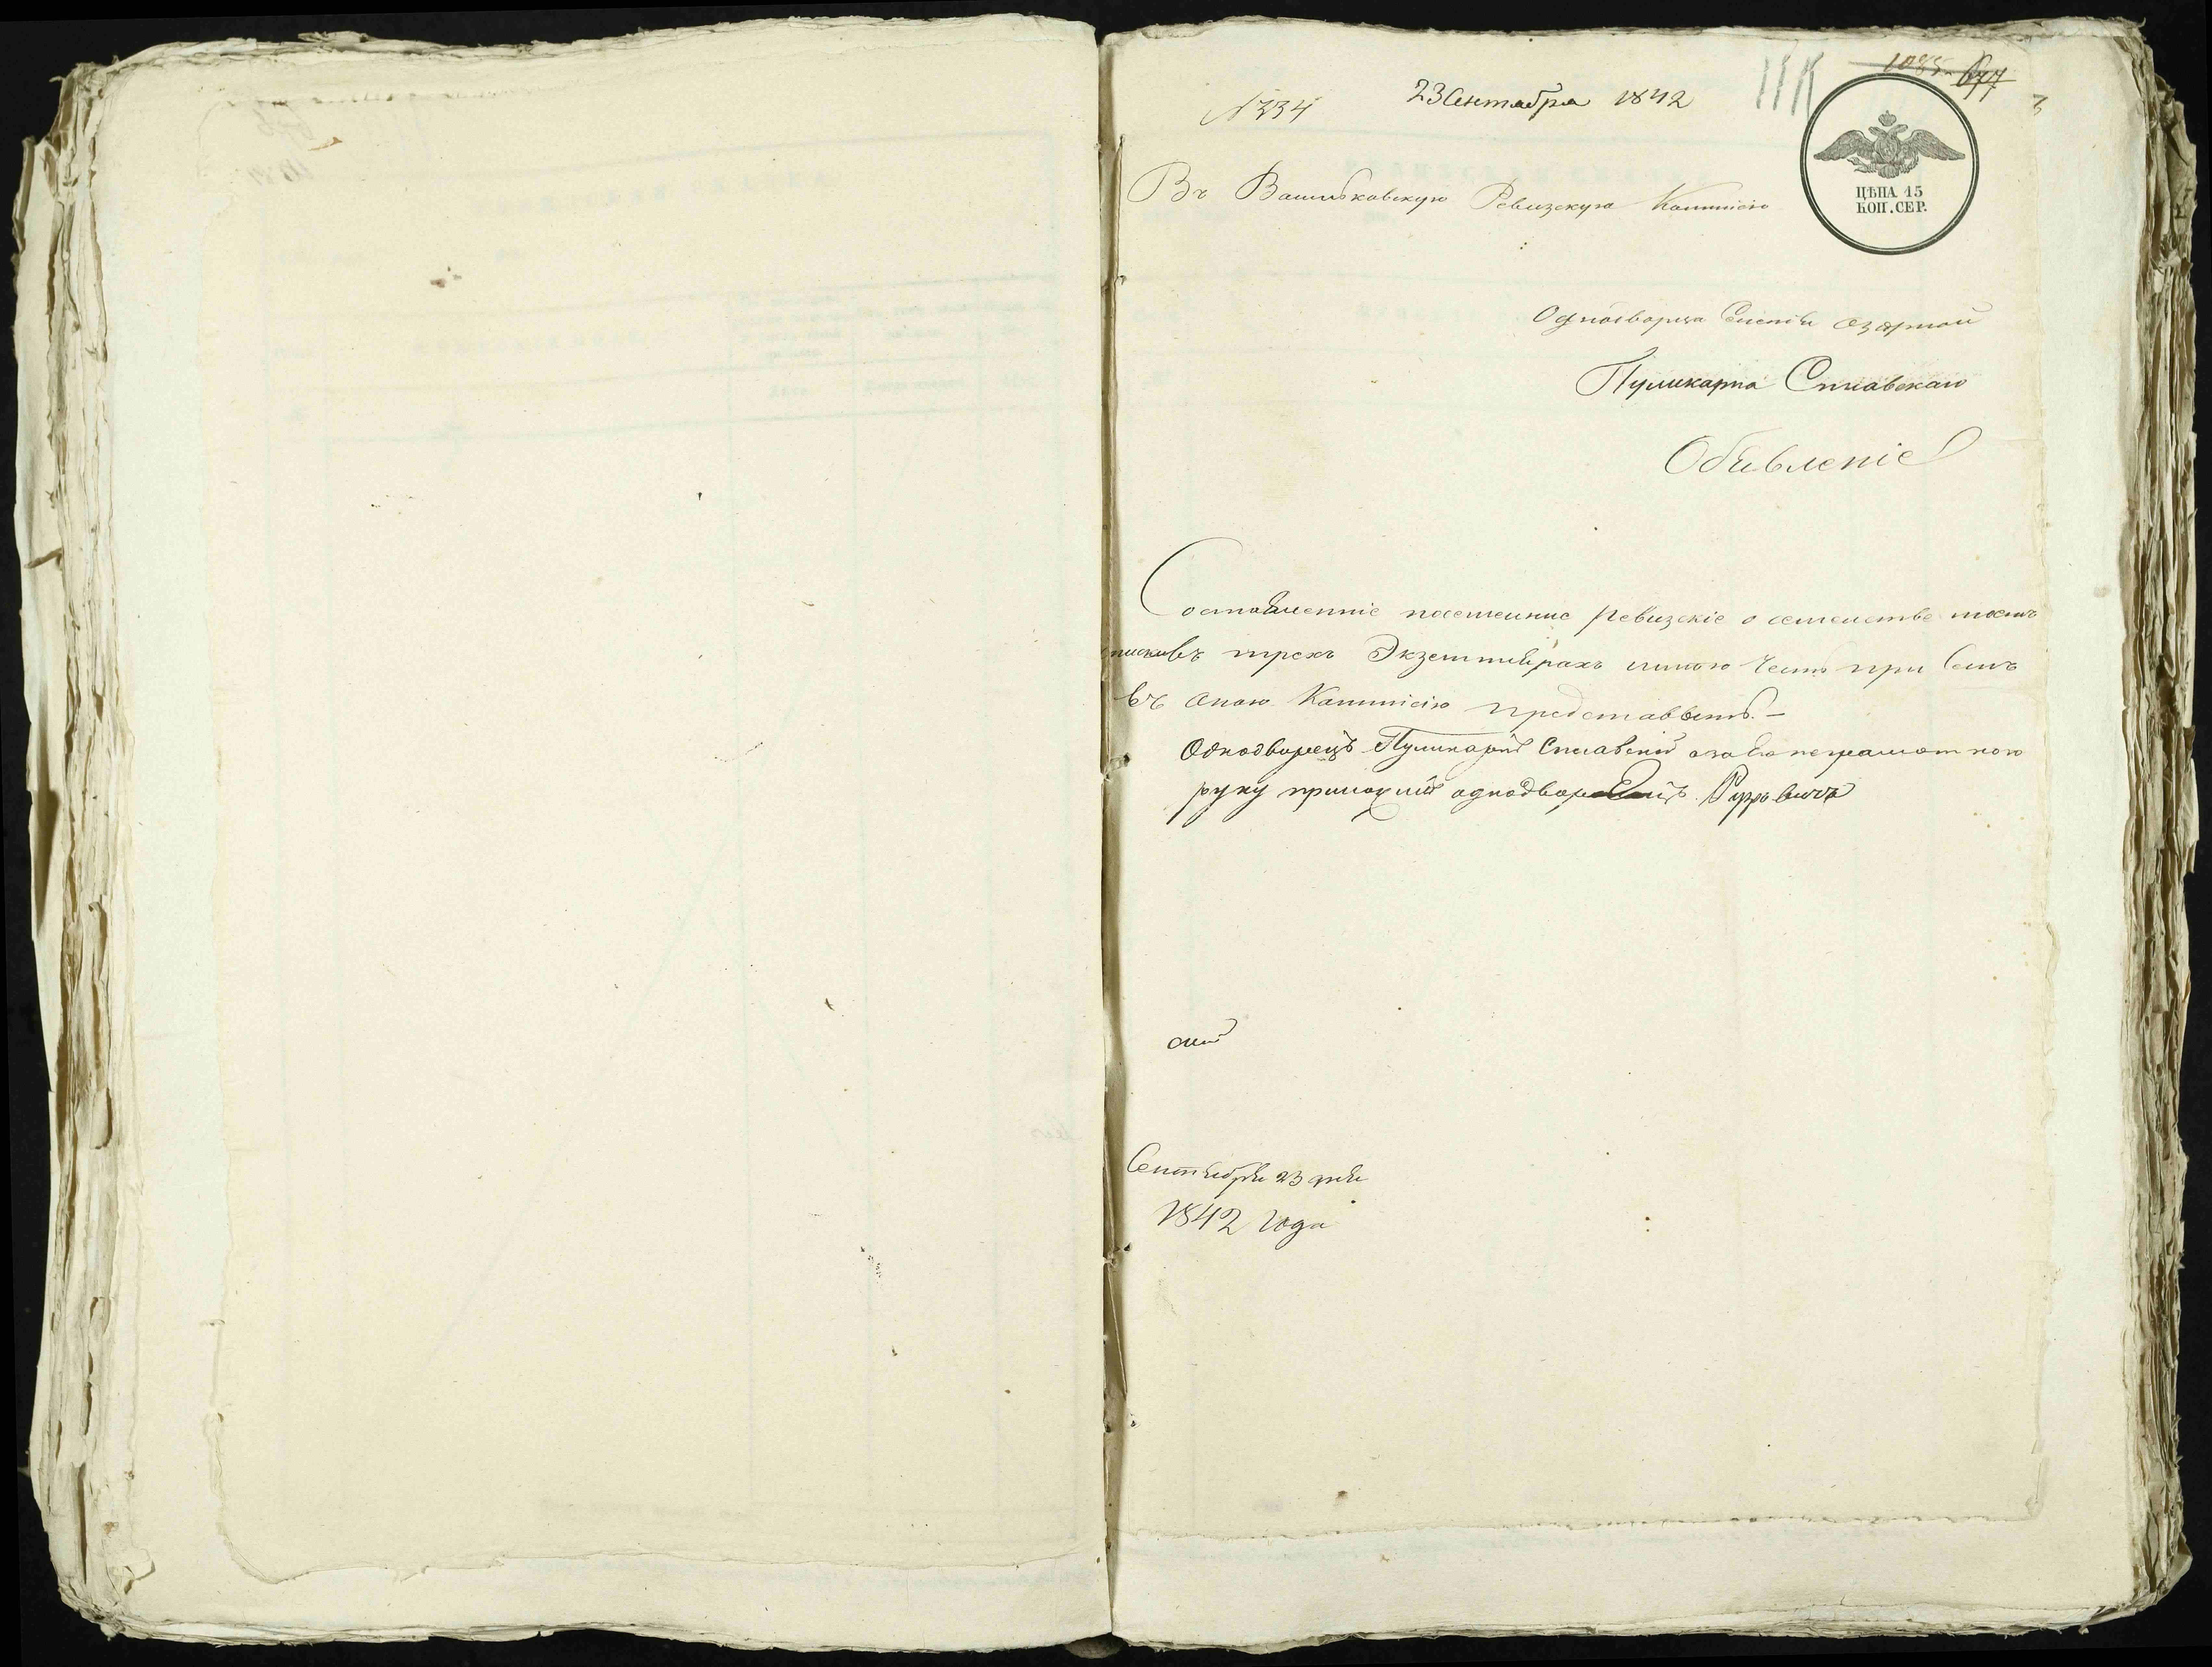 1085 677
№ 334 23 Сентабра 1842
ЦѢНА 15
КОП. СЕР.
Въ Васильковскую Ревизскую Коммисію
Однодворца Озярной
Пуликарпа Сплавскаго
Обявленіе
Составленніе посемейние ревизские о семействе моемъ
въ трехъ Экземплярахъ имѣю Честь при Семъ
въ оною Коммисію представыть. —
Однодворецъ Пуликарпъ Сплавский а за Его неграмотного
руку приложилъ однодворецъ
Сентября 23 дня
1842 года